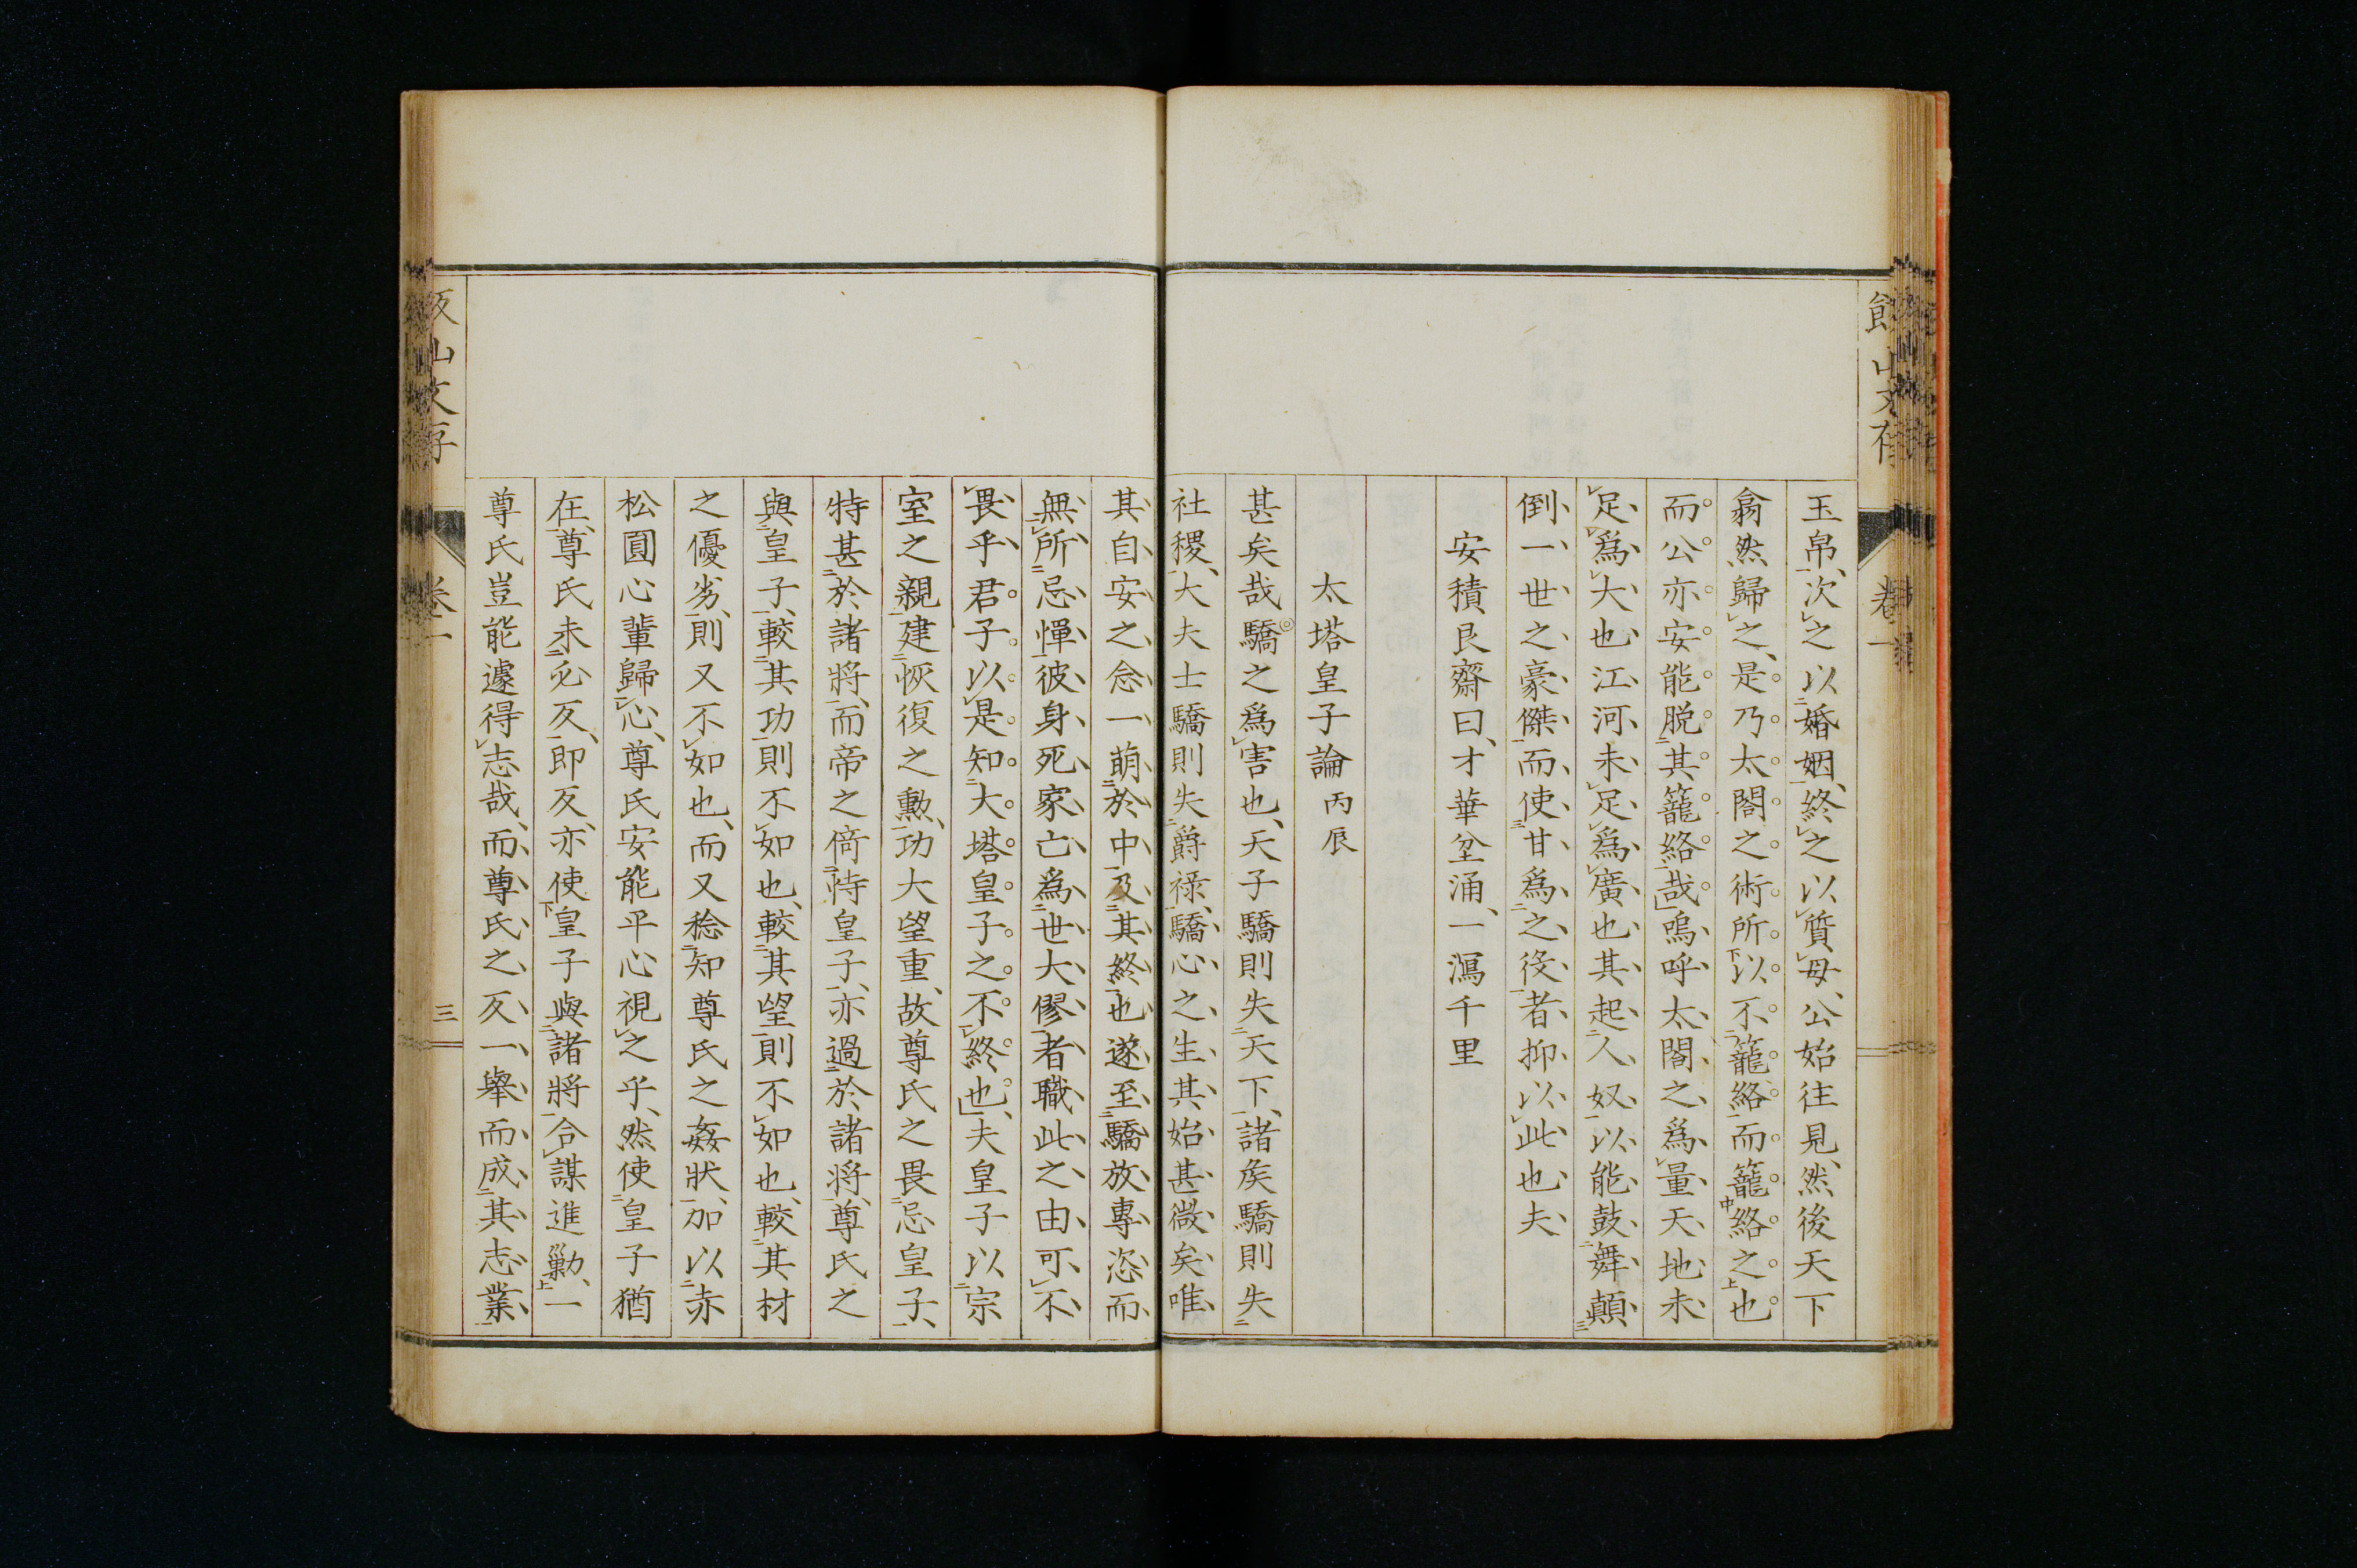 飯山文存
卷一
玉帛、次之以婚姻、終之以質母、公始往見、然後天下
翕然歸之、是乃太閤之術所以不籠絡而籠絡之也
而公亦安能脱其籠絡哉嗚呼太閤之爲量天地未
足爲大也江河未足爲廣也其起人奴以能鼓舞顛
倒一世之豪傑而使甘爲之役者抑以此也夫
安積艮齋曰、才華坌涌、一瀉千里
太塔皇子論 丙辰
甚矣哉驕之爲害也、天子驕則失天下、諸矦驕則失
社稷、大夫士驕則失爵祿、驕心之生其始甚微矣唯
其自安之念一萌於中及其終也遂至驕放專恣而
無所忌憚彼身死家亡爲世大僇者職此之由可不
畏乎君子以是知大塔皇子之不終也、夫皇子以宗
室之親建恢復之勲、功大望重、故尊氏之畏忌皇子、
特甚於諸將、而帝之倚恃皇子、亦過於諸將、尊氏之
與皇子、較其功則不如也、較其望則不如也、較其材
之優劣、則又不如也、而又稔知尊氏之姦狀、加以赤
松圓心輩歸心、尊氏安能平心視之乎、然使皇子猶
在、尊氏未必反、即反、亦使皇子與諸將合謀進勦、一
尊氏豈能遽得志哉、而尊氏之反一舉而成其志業
飯山文存
卷一
三